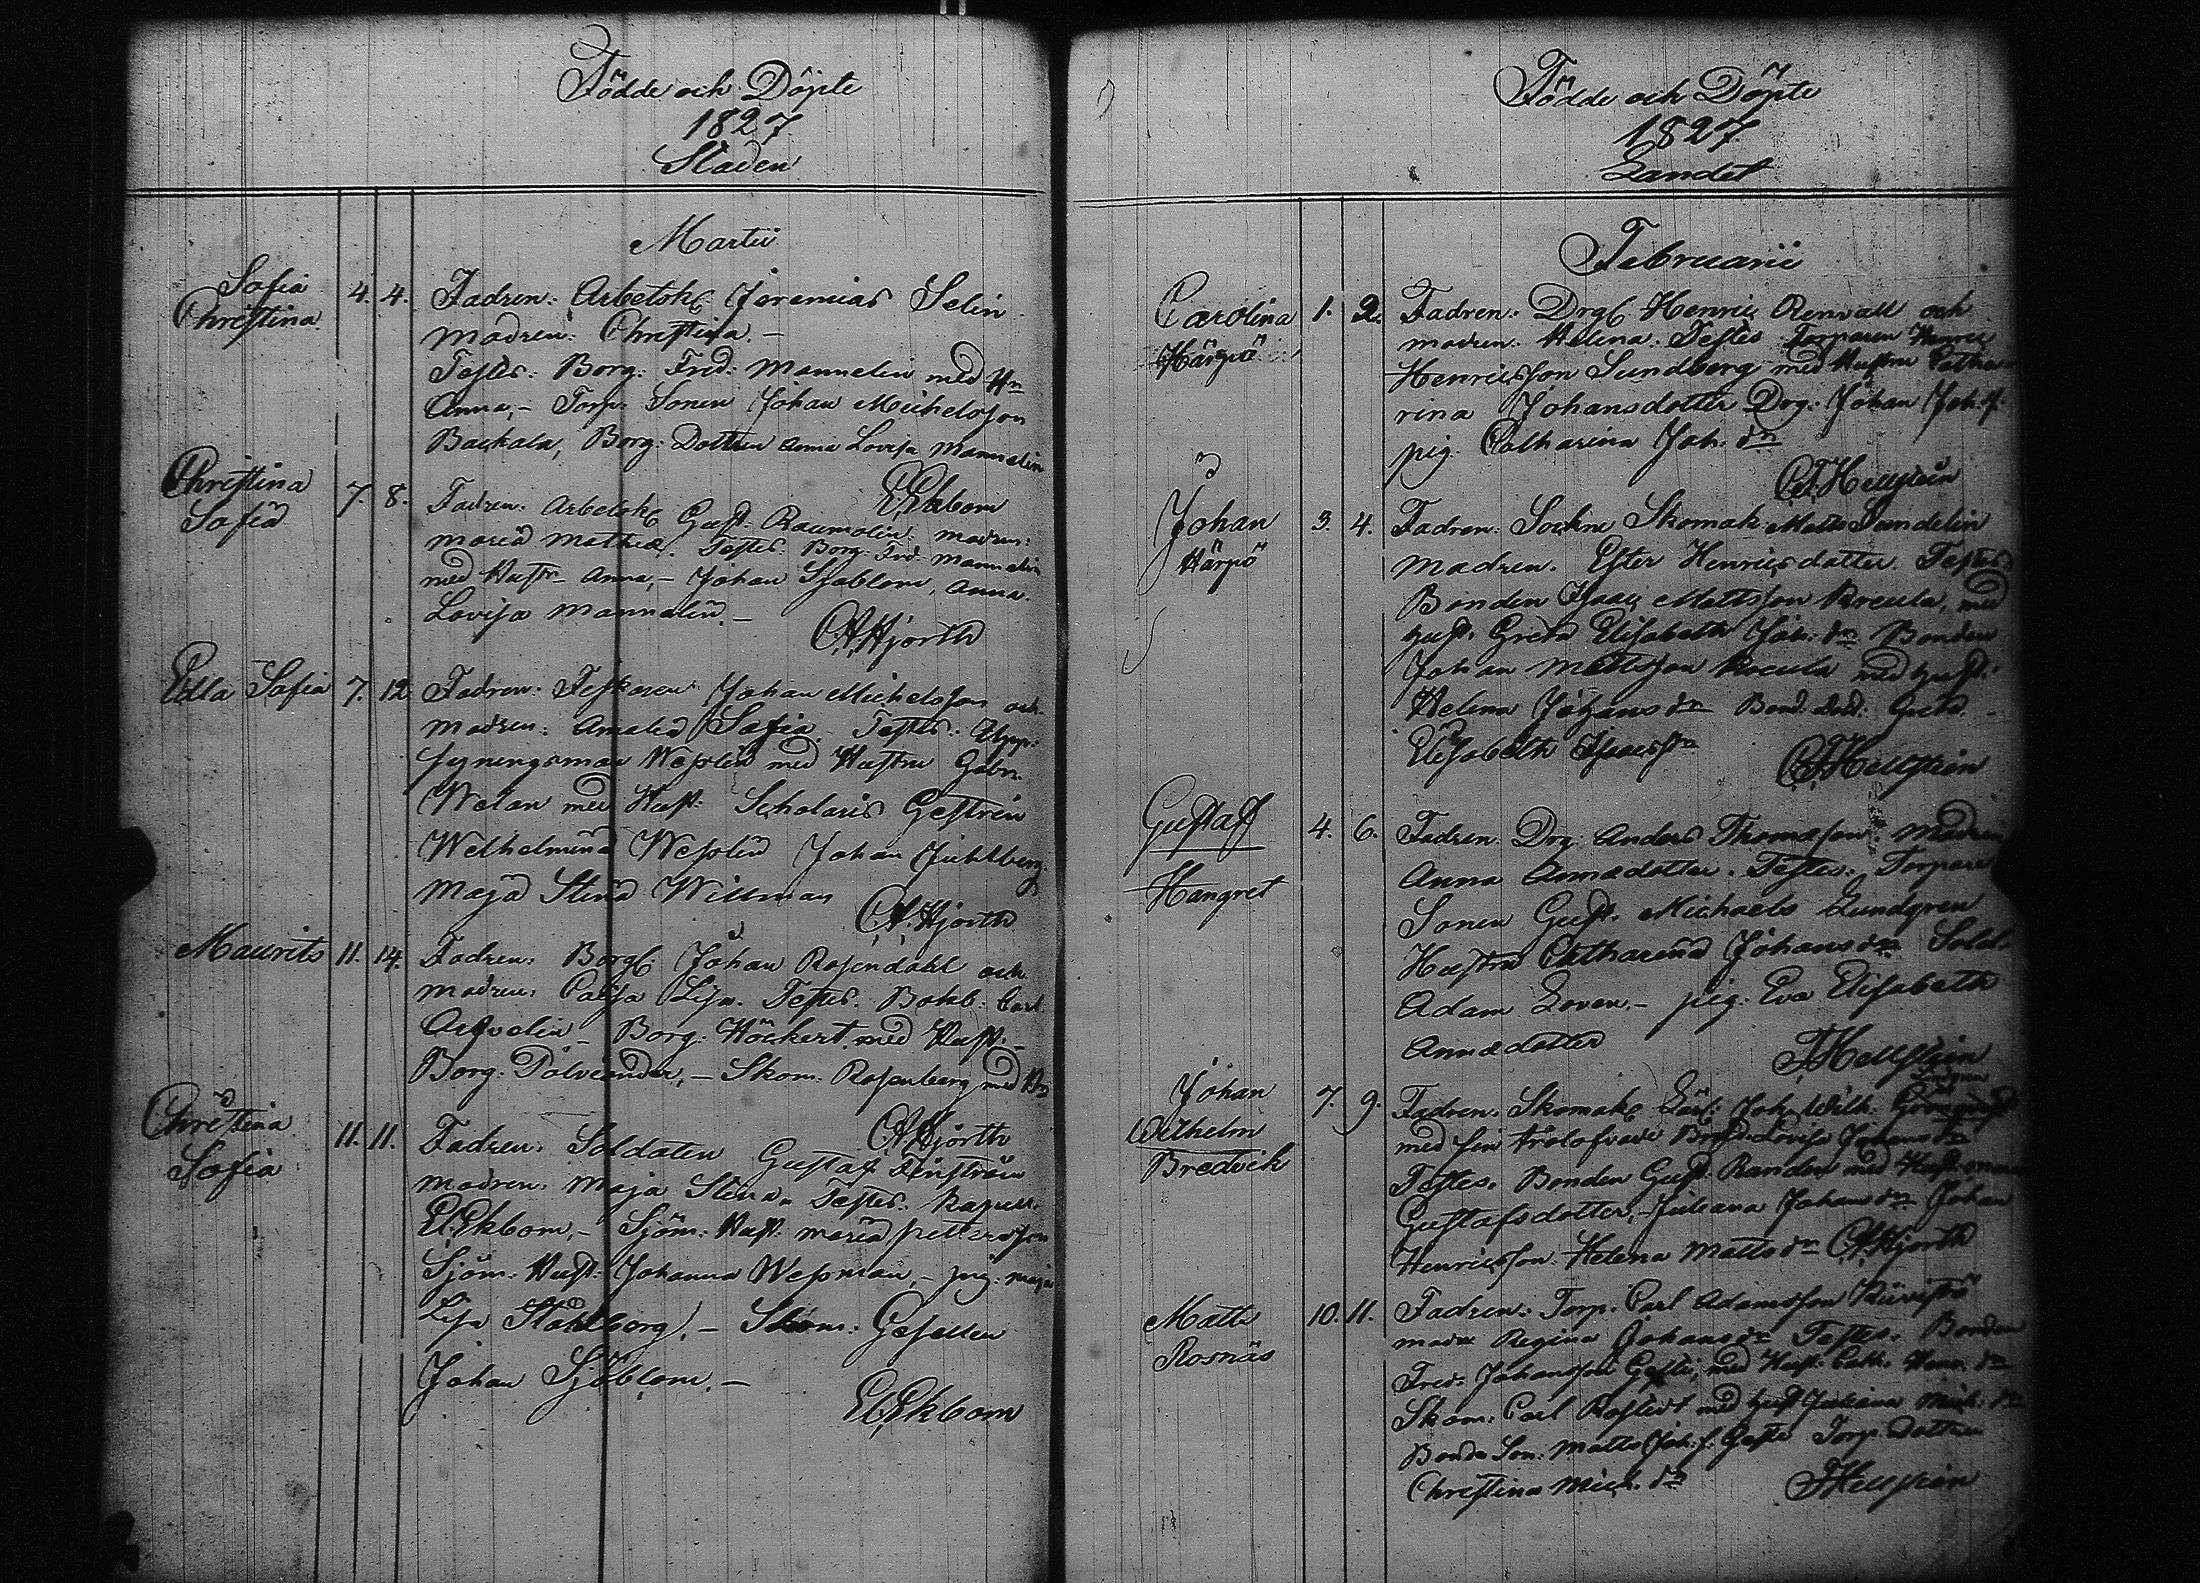 Födde och Döpte
1827
Staden
Martii
Sofia
Christina
4. 4.
Fadren: Arbetsk. Jeremias Selin
madren: Christina.-
Testes: Borg: Fred: Mannelin med Hn
Anna,- Torp: Sonen Johan Michelsson
Backala, Borg: Dottren Anna Lovisa Mannelin
E.Ekbom
Christina
Sofia
7. 8.
Fadren: Arbetsk. Gust: Raumolin. madren:
maria Mathiæ. Testes: Borg: Fred: Mannelin
med Hustr- Anna,- Johan Sjöblom, Anna
Lovisa Mannelin.-
C.A.Hjorth
Edla Sofia
7. 12
Fadren: Fiskaren Johan Michelsson och
madren: Amalia Sofia. Testes: Upp-
syningsman Wesslin med Hustru Gabr.
Welan med Hust: Scholaris Gestrin
Welhelmina Wesslin Johan
Maja Stina Willman
C.A.Hjorth
Maurits
11. 14.
Fadren: Borg. Johan Rosendahl och
madren: Caisa Lisa. Testes. Bokb: Carl
Arfvelin,- Borg: Höckert, med Hust.-
Borg: Pölviander,- Skom: Rosenberg med Hn
C.A.Hjorth
Christina
Sofia
11. 11.
Fadren: Soldaten Gustaf Finström
madren: Maja Stina. Testes: Kapell.
E.Ekbom,- Sjöm: Hust: Maria Pettersson
Sjöm: Hust: Johanna Wessman,- pig: Maja
Lisa Stahlberg,- Skom: Gesellen
Johan Sjöblom.-
E.Ekbom
Födde och Döpte
1827
Landet
Februarii
Carolina
Härpö
1. 2.
Fadren: Drg. Henric Renvall och
madren: Helena. Testes Torparen Henric
Henricsson Sundberg med Hustru Catha-
rina Johansdotter Drg: Johan Joh.s.
pig. Catharina Joh. dr
C.F.Hellsten
Johan
Härpö
3. 4.
Fadren: Sockne Skomak: Matts Sundelin
Madren. Ester Henricsdotter. Testes.
Bonden Isaac Mattsson Krecula, med
hust. Greta Elisabeth Joh. dr Bonden
Johan Mattsson Krecula med hust.
Helena Johans dr Bond. dott: Greta
Elisabeth Isacs dr
C.F.Hellsten
Gustaf
Hangret
4. 6.
Fadren Drg Anders Thomasson. Madren
Anna Annædotter. Testes. Torpare
Sonen Gust. Michaels Lundgren
Hustru Catharina Johans dr Sold.
Adam Loven.- pig. Eva Elisabeth
Annædotter
F.Hellsten
Johan
Wilhelm
Bredvik
7. 9.
Fadren. Skomak. Lärl: Joh. Wilh. Grönqvist
med sin trolofvade Lovisa Johans dr
Testes. Bonden Gust. Randen med Hust. Maria
Gustafsdotter,- Juliana Johans dr Johan
Henricsson. Helena Matts dr C.A.Hjorth
Matts
Rosnäs
10. 11.
Fadren: Torp. Carl Adamsson
madr Regina Johans dr Testes. Bonden
Fred: Johansson med Hust: Cath. Henr. dr
Skom. Carl med hust Juliana Mich. dr
Bonde Son. Matts Joh.s. Torp. Dottren
Christina Mich. dr
F.Hellsten